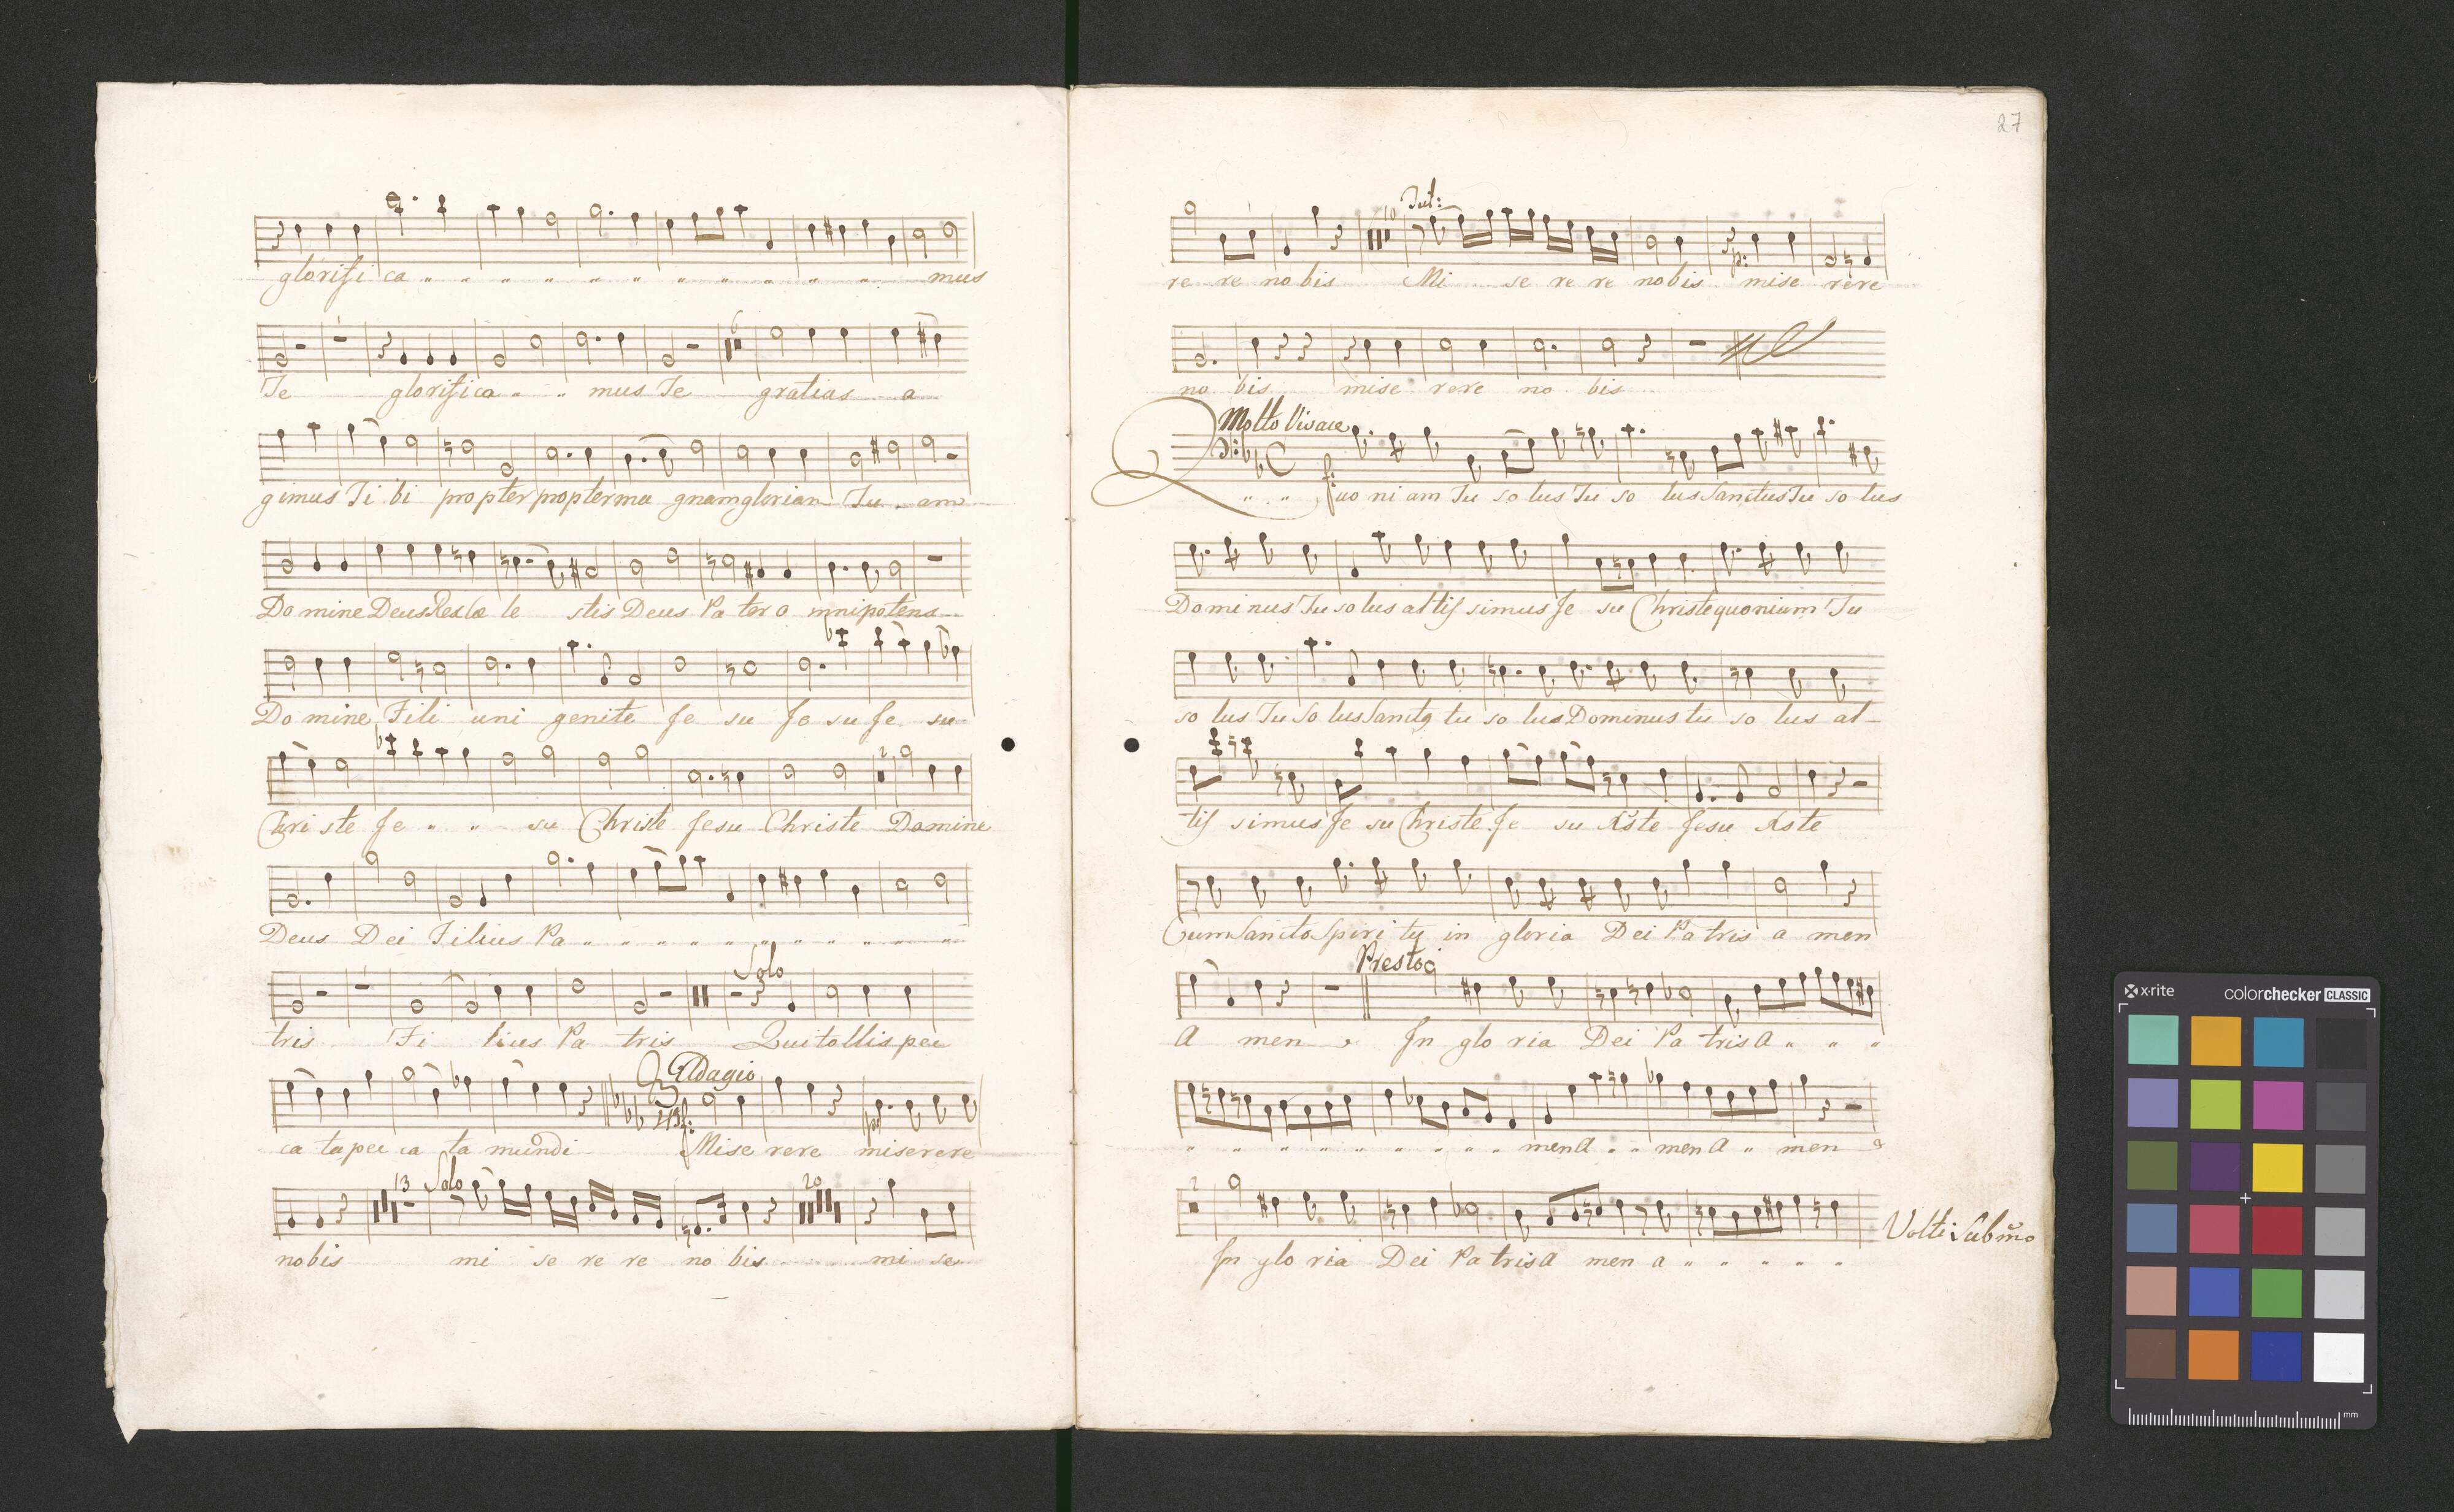 glorifi ca " " " " " " " " " " " mus
6
Te glorifica " " mus Te gratias a
gimus Ti bi propter propter ma gnam gloriam Tu . am
Do mine Deus Rex Cœ le stis Deus Pa ter o mnipotens
Do mine Fili uni genite Je su Je su Je su
Chri ste Je " " su Christe Jesu Christe Domine
2
Deus Dei Filius Pa " " " " " " " " " "
Solo
tris Fi lius Pa tris Qui tollis pec
Adagio
ca ta pec ca ta mundi Mise rere miserere
13 Solo 20
nobis mi se re re no bis mi se
27
10 Tut:
re re no bis Mi se re re nobis mise rere
p:
no bis mise rere no bis
Molto Vivace
Q " " uo ni am Tu so lus Tu so lus Sanctus Tu so lus
Do mi nus Tu so lus altis simus Je su Christe quoniam Tu
so lus Tu So lus Sanctus tu so lus Dominus tu so lus al-
tis simus Je su Christe Je su Xste Jesu Xste
Cum Sancto Spiri tu in gloria Dei Pa tris a men
Presto
A men In glo ria Dei Pa tris A " " "
" " " " " " " " " men A " " men A " men
2
In glo ria Dei Pa tris A men a " " " " "
Volti Subito